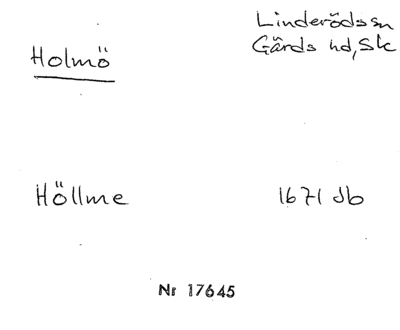 Linderödssn
Holmö
Gärds hd, Sk
Höllme
1671 Jb
Nr 17645